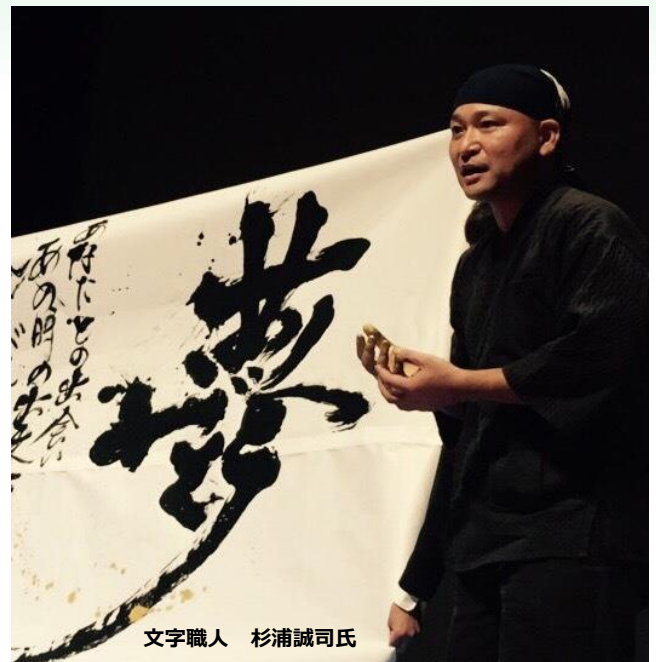 夢
あなたとの出会い
あの
文字職人　杉浦誠司氏